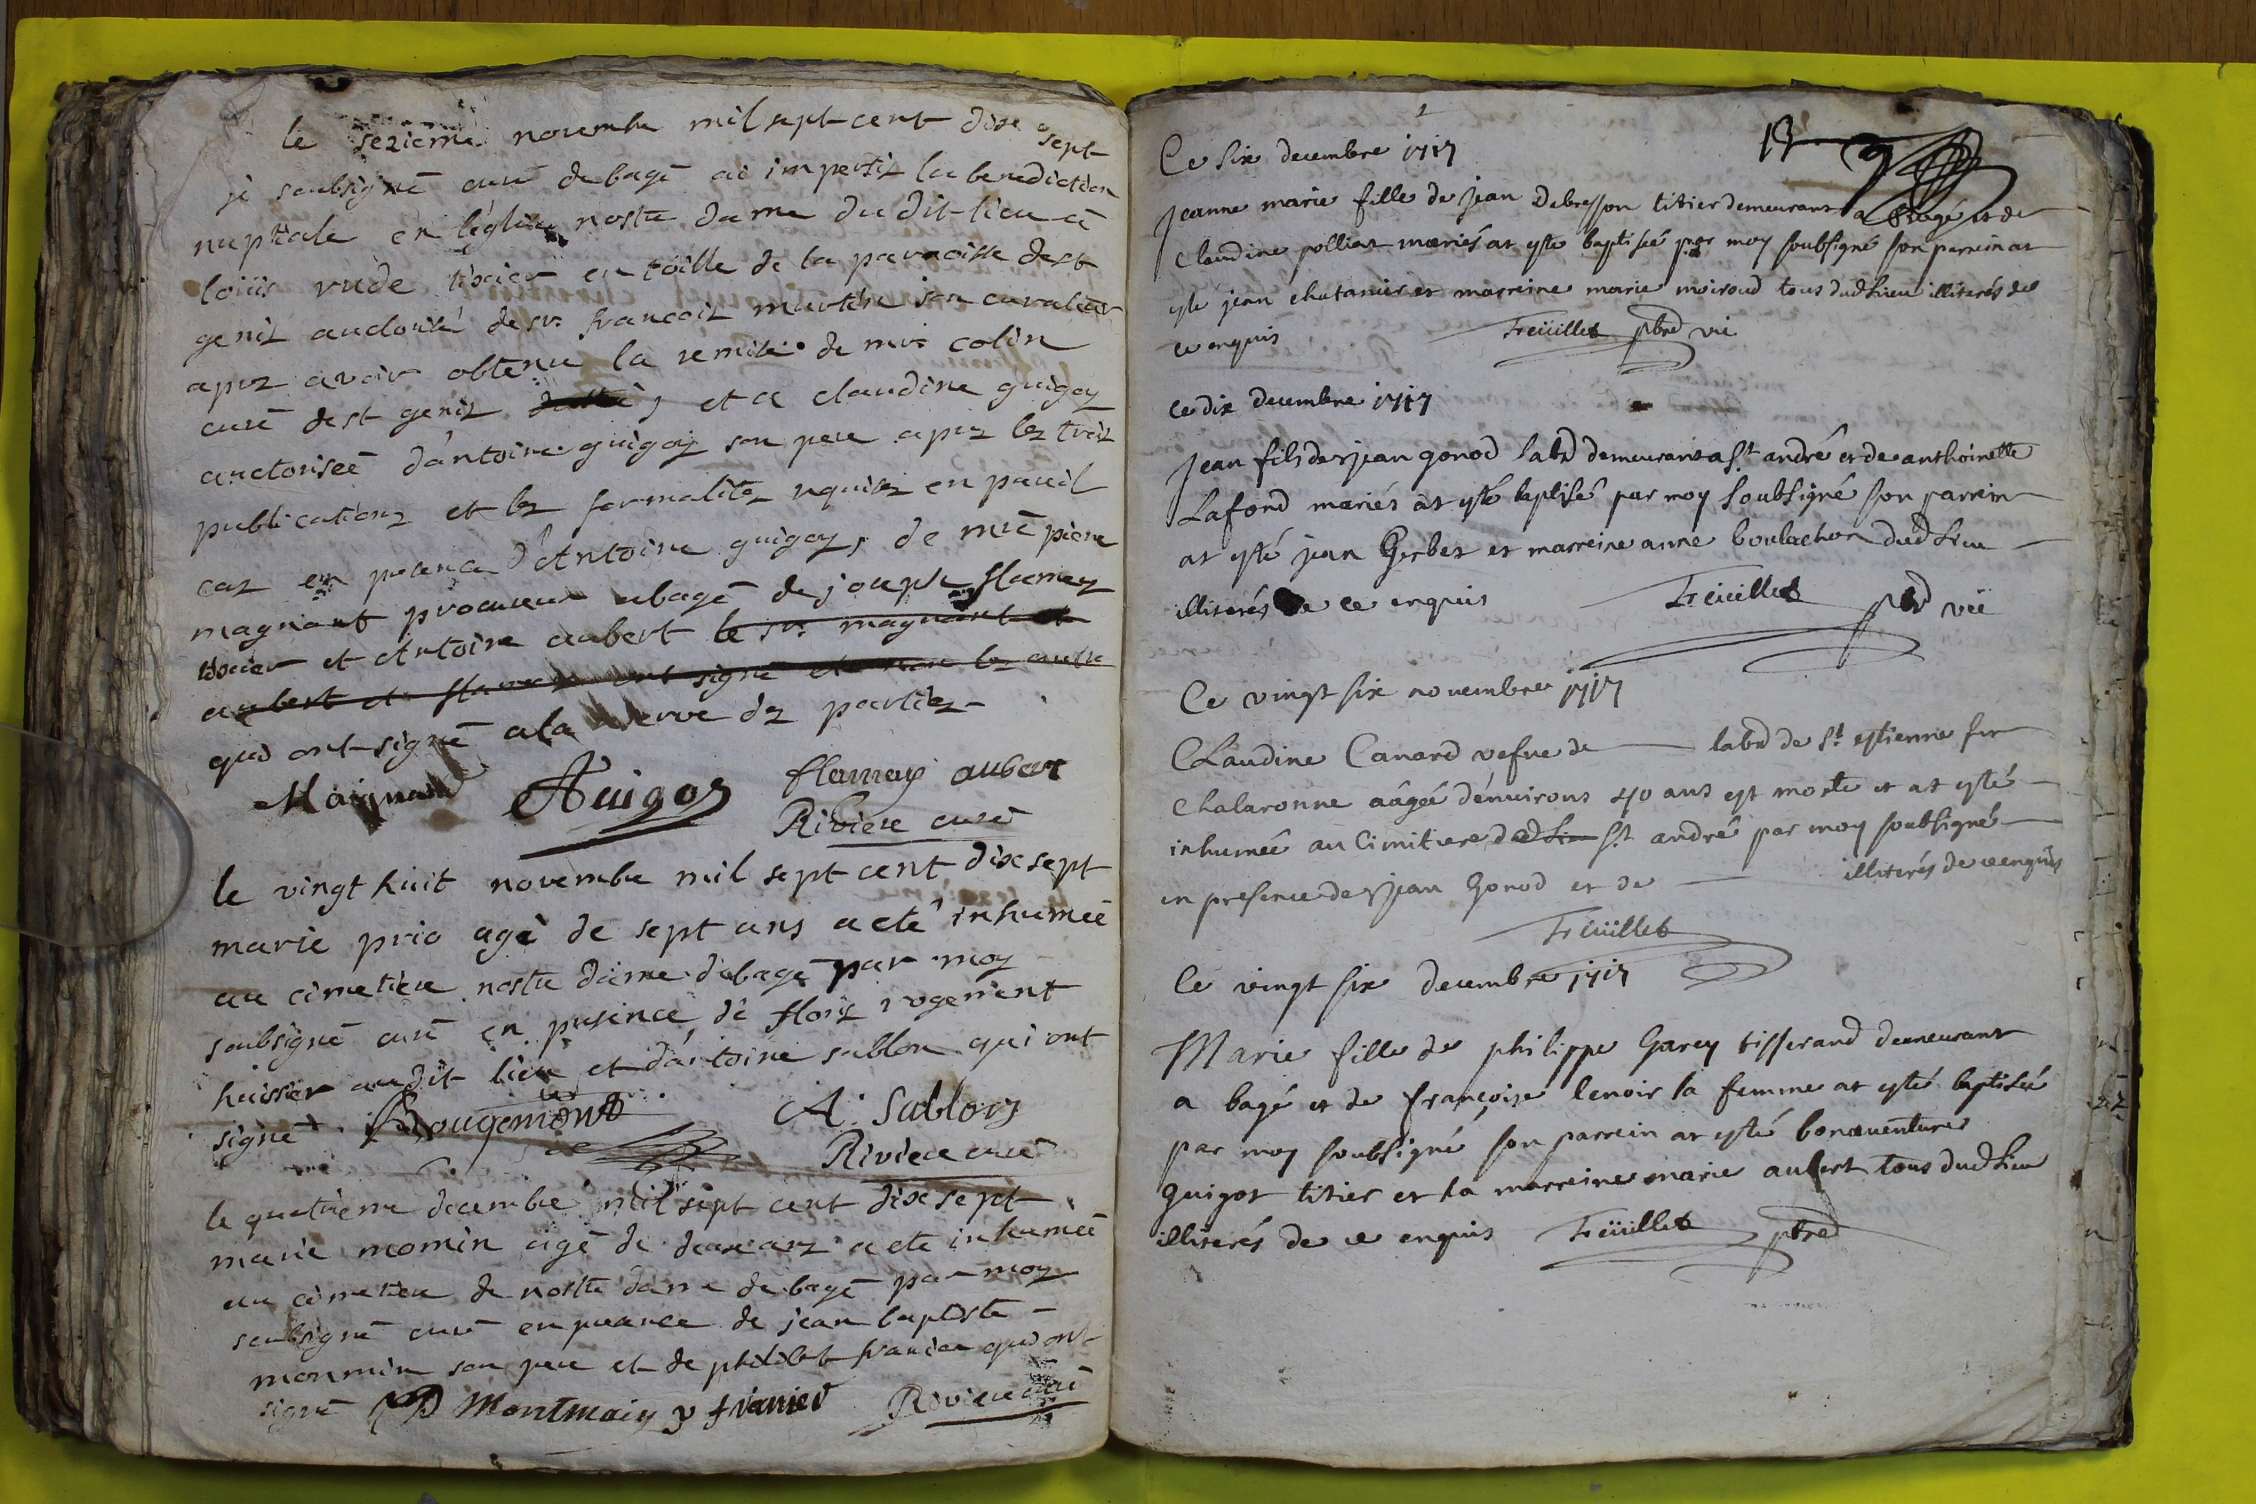 le sezieme novembre mil sept cent dixe sept
je soubsigné curé de bagé ai imperti la benediction
nuptiale en l'église nostre dame du dit lieu a
loüis rude tixier en toille de la parroisse de st
genis auctorisé de sr francois son curateur
aprez avoir obtenu la remise de mr colin
curé de st genis et a claudine guigoz
auctorisée d'antoine guigoz son pere aprez lez troiz
publicationz et lez formalitez requisez en pareil
caz en presence d'Antoine guigoz, de mre pierre
magnant procureur a bagé de joseph flamez
tixier et Antoine aubert le sr. magnant et
aubert et flamez ont signé et non lez autre
qui ont signé a la reserve dez partiez
Maignand AGuigoz flamay aubert
Riviere curé
le vingt huit novembre mil sept cent dixe sept
marie prio agé de sept ans a eté inhumée
au cimetiere nostre dame de bagé par moy
soubsigné curé en presence de rogemont
huissier au dit lieu et d'antoine sablon qui ont
signé Rougemont A. Sablons
Riviere curé
le quatrieme decembre mil sept cent dixe sept
marie momin agé de deux anz a eté inhumée
au cimetiere de nostre dame de bagé par moy
soubsigné curé en presence de jean baptiste
monmin son pere et de philibert franier qui ont
signé Montmain p franier Riviere curé
Ce six decembre 1717
Jeanne marie fille de jean Debresson titier demeurant a Bagé et de
Claudine polliat mariés at esté baptisée par moy soubsigné son parrein at
esté jean chatanier et marreine marie moiroud tous dud lieu illiterés de
ce enquis Freüillet pbre vic
Ce dix decembre 1717
Jean fils de jean gonod labr demeurant a St andré et de anthoinette
Lafond mariés at esté baptisé par moy soubsigné son parrein
at esté jean Gerbet et marreine anne boulachon dud lieu
illiterés de ce enquis Freüillet pbr vic
Ce vingt six novembre 1717
Claudine Canard vefve de labr de St estienne sur
Chalaronne aâgée d'environs 40 ans est morte et at esté
inhumée au Cimitiere dud lieu St andré par moy soubsigné
en presence de jean gonod et de illiterés de ce enquis
Freüillet
Ce vingt six decembre 1717
Marie fille de philippe Garey tisserand demeurant
a bagé et de françoise lenoir sa femme at esté baptisée
par moy soubsigné son parrein at esté bonaventure
guigot titier et sa marreine marie aubert tous dud lieu
illiterés de ce enquis Freüillet pbre